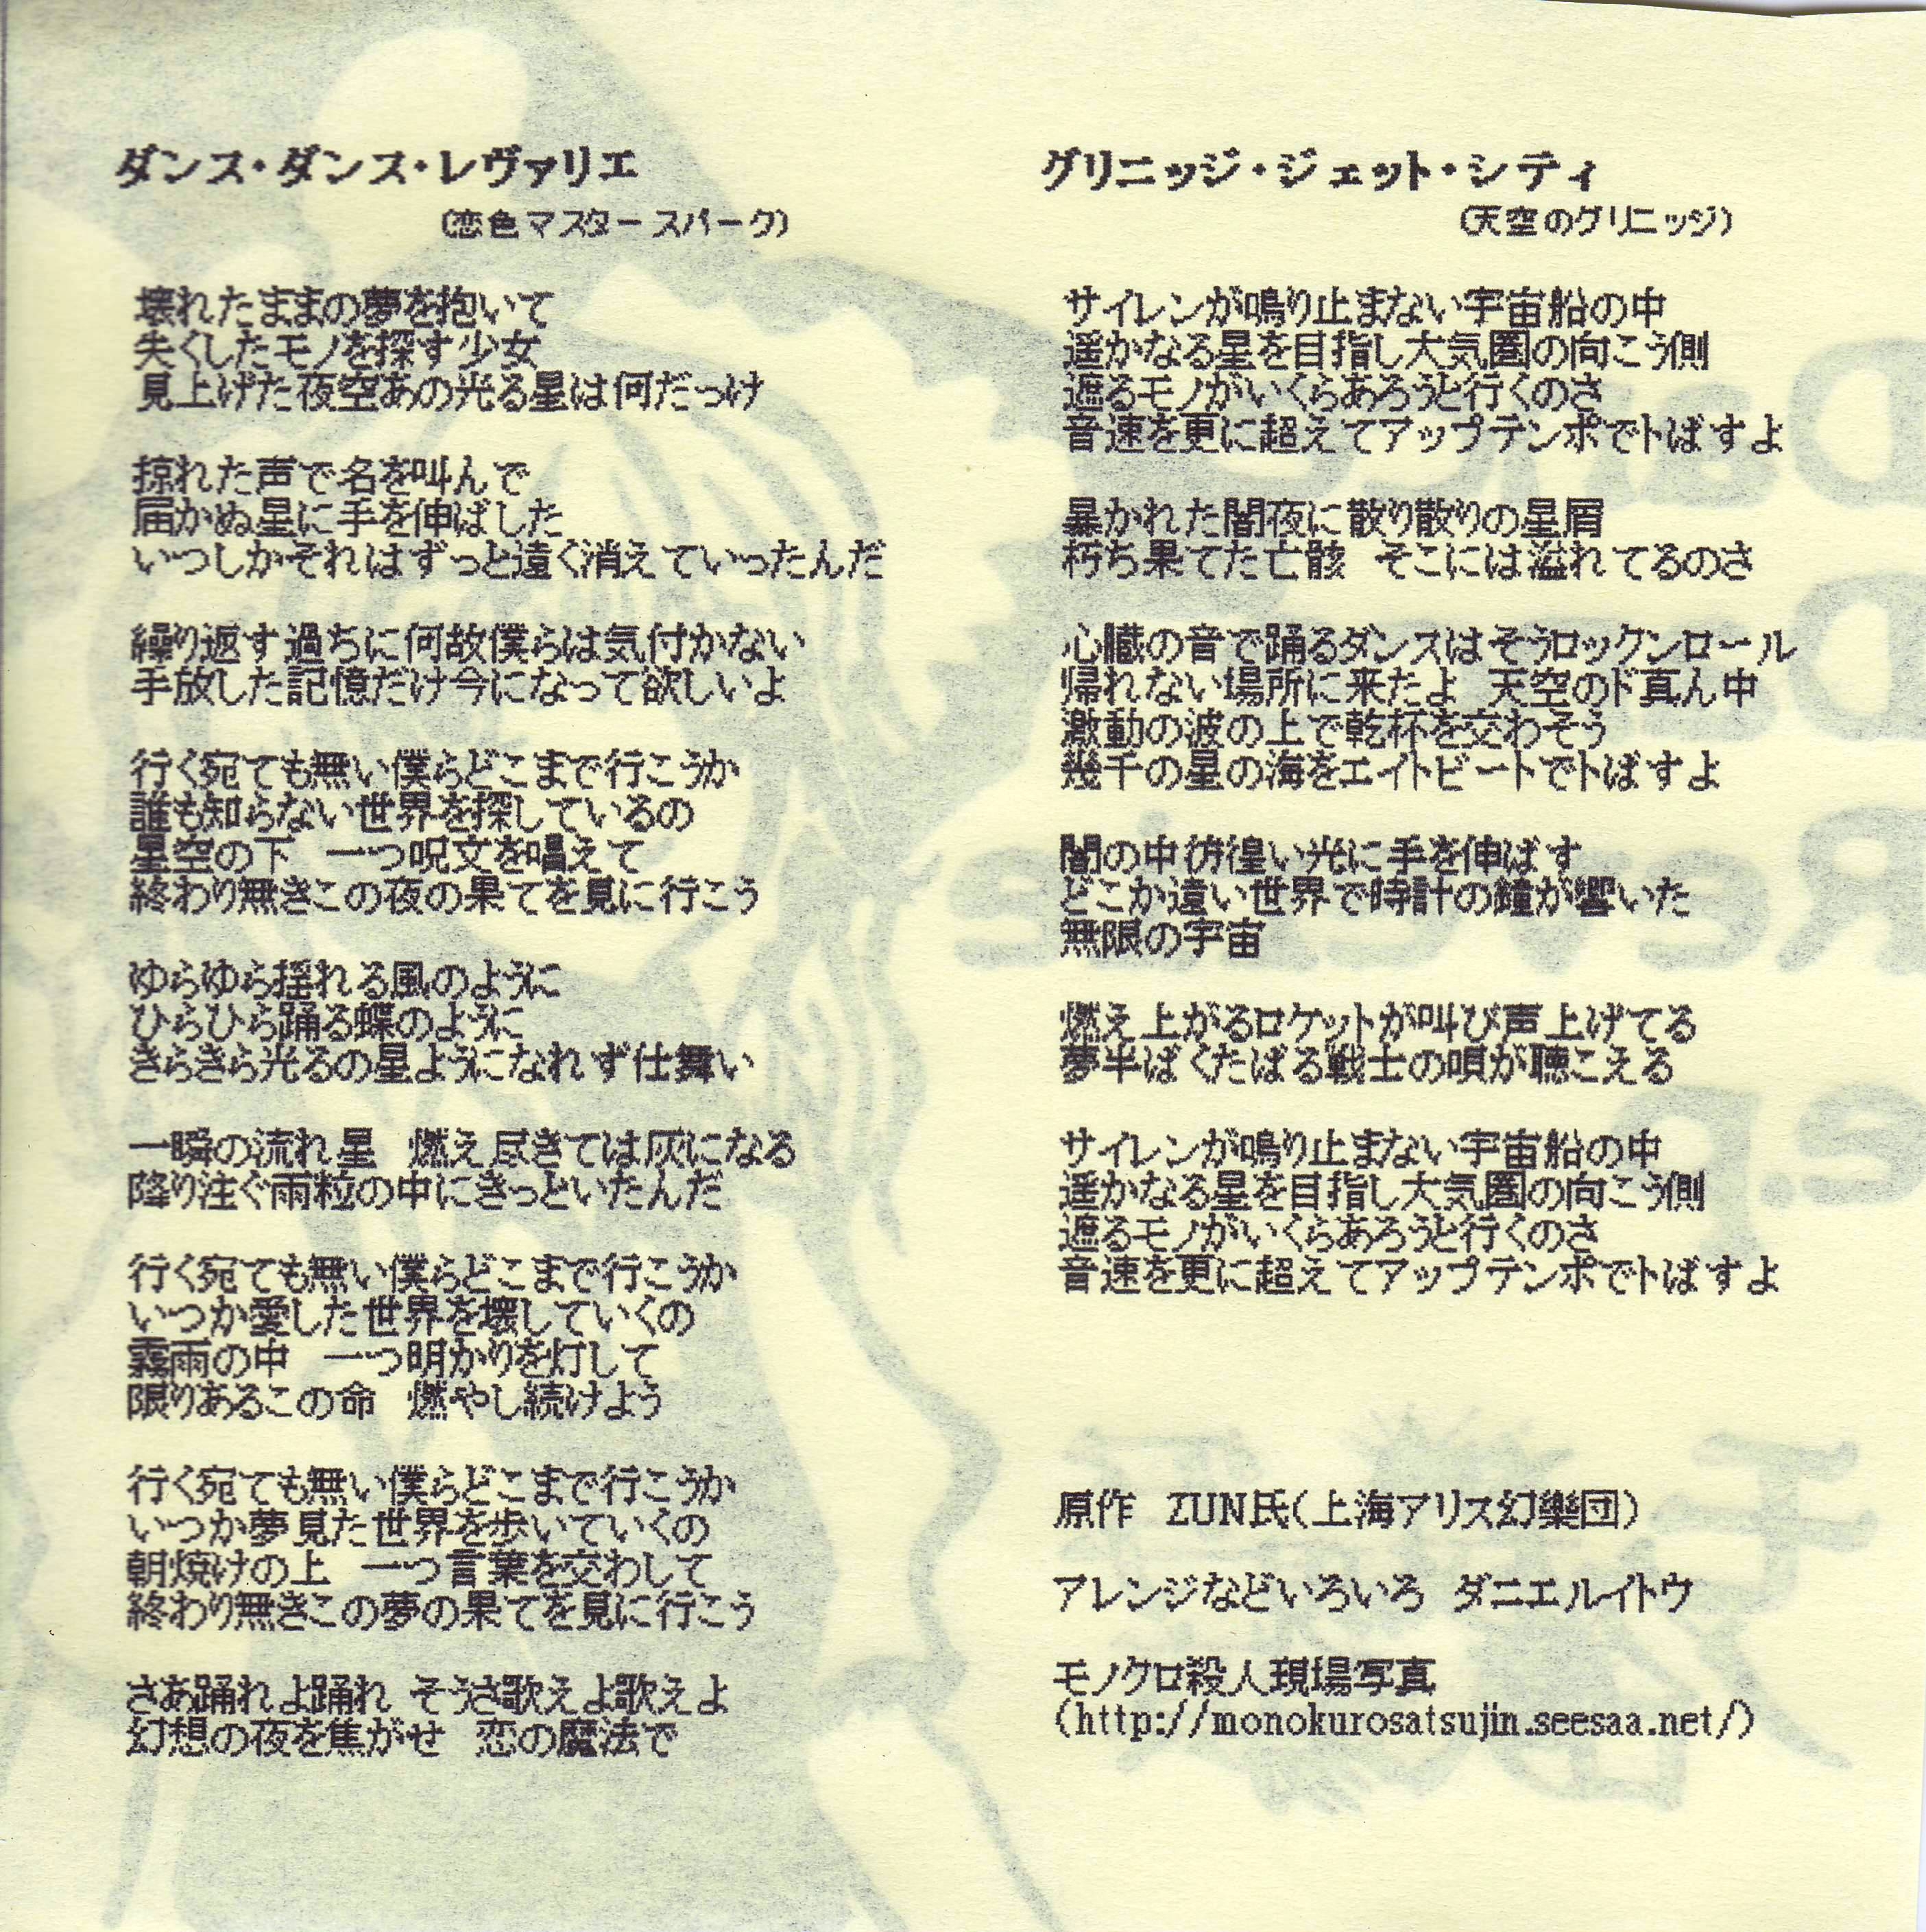 ダンス・ダンス・レヴァリエ
(恋色マスタースパーク)
壊れたままの夢を抱いて
失くしたモノを探す少女
見上げた夜空あの光る星は何だっけ
掠れた声で名を叫んで
届かぬ星に手を伸ばした
いつしかそれはずっと遠く消えていったんだ
繰り返す過ちに何故僕らは気付かない
手放した記憶だけ今になって欲しいよ
行く宛ても無い僕らどこまで行こうか
誰も知らない世界を探しているの
星空の下　一つ呪文を唱えて
終わり無きこの夜の果てを見に行こう
ゆらゆら揺れる風のように
ひらひら踊る蝶のように
きらきら光るの星ようになれず仕舞い
一瞬の流れ星　燃え尽きては灰になる
降り注ぐ雨粒の中にきっといたんだ
行く宛ても無い僕らどこまで行こうか
いつか愛した世界を壊していくの
霧雨の中　一つ明かりを灯して
限りあるこの命　燃やし続けよう
行く宛ても無い僕らどこまで行こうか
いつか夢見た世界を歩いていくの
朝焼けの上　一つ言葉を交わして
終わり無きこの夢の果てを見に行こう
さあ踊れよ踊れ　そうさ歌えよ歌えよ
幻想の夜を焦がせ　恋の魔法で
グリニッジ・ジェット・シティ
(天空のグリニッジ)
サイレンが鳴り止まない宇宙船の中
遥かなる星を目指し大気圏の向こう側
遮るモノがいくらあろうと行くのさ
音速を更に超えてアップテンポでトばすよ
暴かれた闇夜に散り散りの星屑
朽ち果てた亡骸　そこには溢れてるのさ
心臓の音で踊るダンスはそうロックンロール
帰れない場所に来たよ　天空のド真ん中
激動の波の上で乾杯を交わそう
幾千の星の海をエイトビートでトばすよ
闇の中彷徨い光に手を伸ばす
どこか遠い世界で時計の鐘が響いた
無限の宇宙
燃え上がるロケットが叫び声上げてる
夢半ばくたばる戦士の唄が聴こえる
サイレンが鳴り止まない宇宙船の中
遥かなる星を目指し大気圏の向こう側
遮るモノがいくらあろうと行くのさ
音速を更に超えてアップテンポでトばすよ
原作　ZUN氏(上海アリス幻樂団)
アレンジなどいろいろ　ダニエルイトウ
モノクロ殺人現場写真
(http://monokurosatsujin.seesaa.net/)